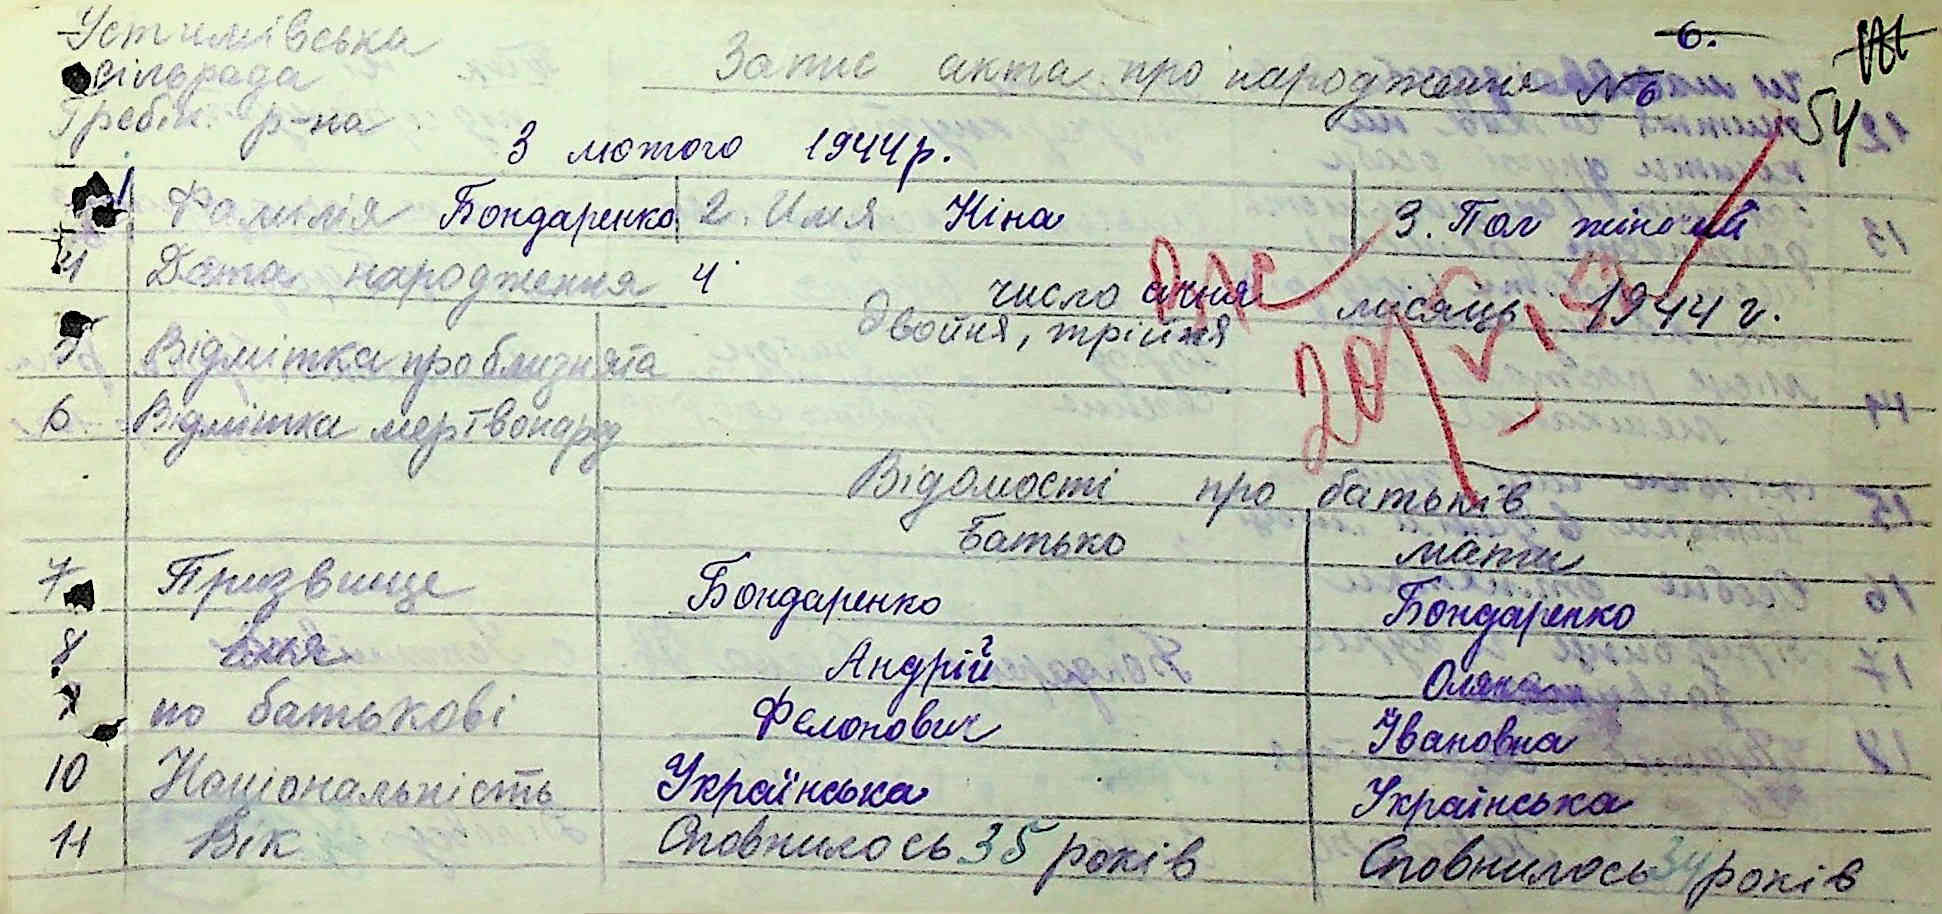 Устимівська
сільрада
Гребін. р-на
6.
54
Запис акта про народження №6
3 лютого 1944р.
1 Фамилія Бондаренко 2. Имя Ніна 3. Пол жіночий
4 Дата народження 4 число січня місяць 1944 г.
5 Відмітка про близнята двойня, трійня
6 Відмітка мертвонард
Відомості про батьків
Батько мати
7 Призвище Бондаренко Бондаренко
8 імья Андрій Оляна
9 по батькові Фелонович Івановна
10 Національність Українська Українська
11 Вік Сповнилось 35 років Сповнилось 34 років